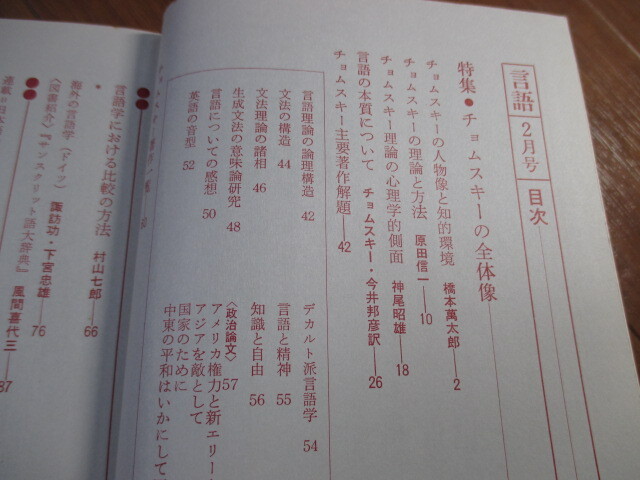 言語 2月号 目次
特集●チョムスキーの全体像
チョムスキーの人物像と知的環境 橋本萬太郎――2
チョムスキーの理論と方法 原田信一――10
チョムスキー理論の心理学的側面 神尾昭雄――18
言語の本質について チョムスキー・今井邦彦訳――26
チョムスキー主要著作解題――42
言語理論の論理構造 42
文法の構造 44
文法理論の諸相 46
生成文法の意味論研究 48
言語についての感想 50
英語の音型 52
デカルト派言語学 54
言語と精神 55
知識と自由 56
〈政治論文〉57
アメリカ権力と新エリー
アジアを敵として
国家のために
中東の平和はいかにして
言語学における比較の方法 村山七郎――66
海外の言語学(ドイツ) 諏訪功・下宮忠雄――76
〈図書紹介〉『サンスクリット語大辞典』 風間喜代三――87